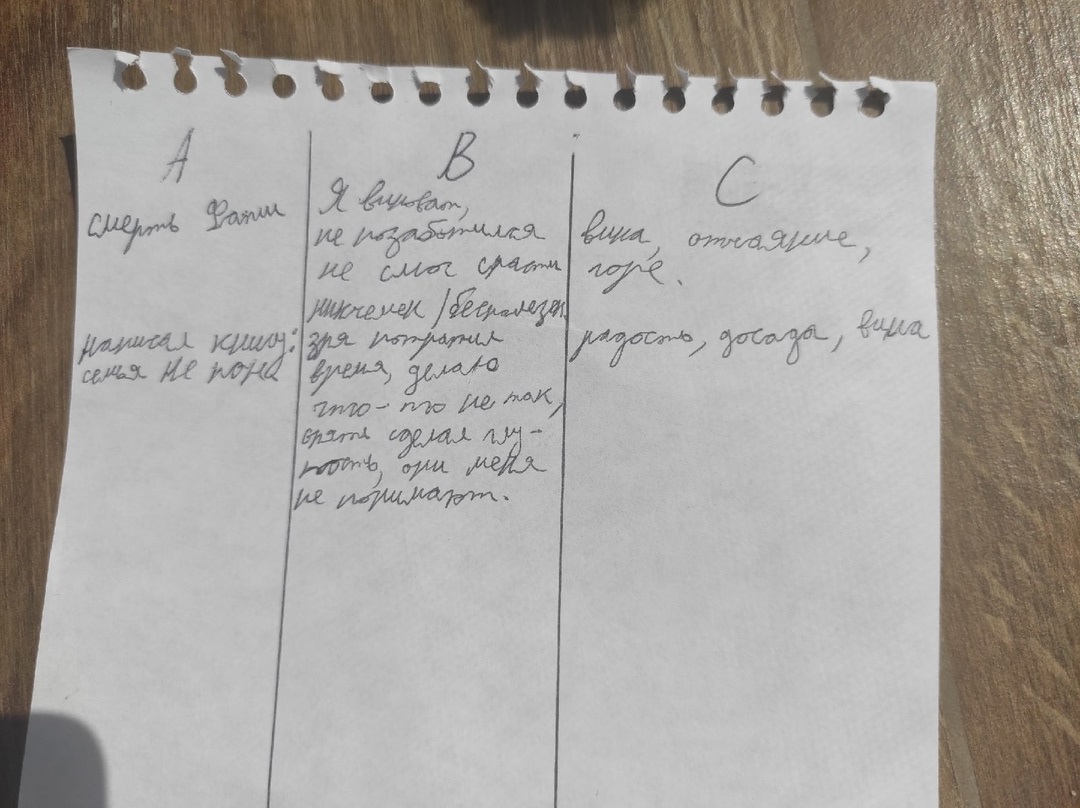 A
B
C
смерть
Я виноват,
не позаботился
не смог спасти
никчемен / бесполезен
вина, отчаяние,
горе.
написал книгу:
семья не
зря потратил
время, делаю
что-то не так,
опять сделал глу-
пость, они меня
не понимают.
радость, досада, вина